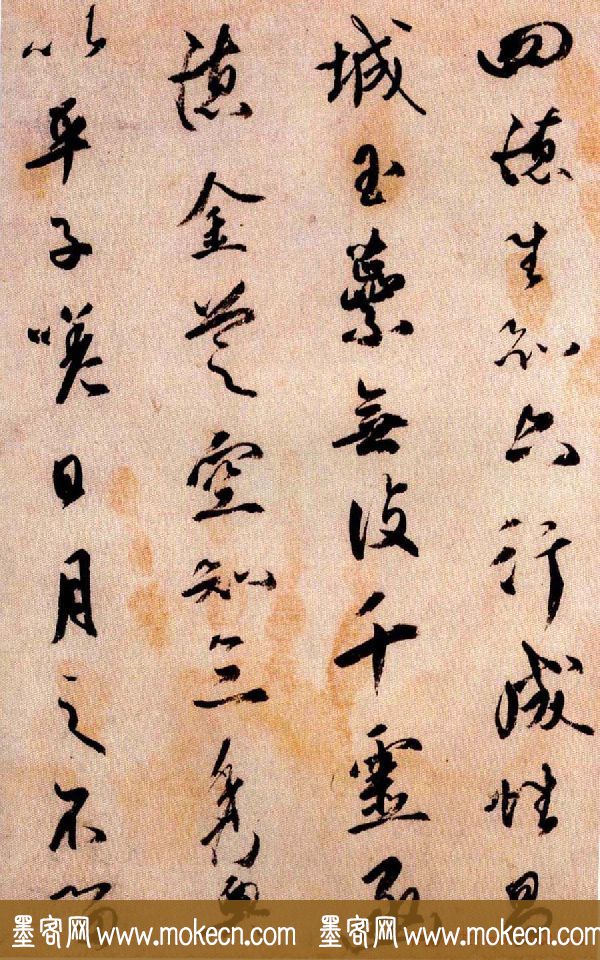 四德生知六行咸性
城玉蘂無復千靈
德金芝空知三秀
以平子嘆日月之不留
墨客网 www.mokecn.com 墨客网 www.mokecn.com